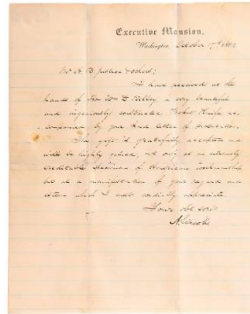 Executive Mansion,
Washington, October 17th, 186
I have received at the
hands of Hon Wm D Kelley a very beautiful
and ingeniously constructed Pocket Knife, ac-
companied by your kind letter of
The gift is gratefully accepted and
will be highly valued, not only as an extremely
creditable specimen of American workmanship
but as a manifestation of your regard and
esteem which I most cordially appreciate.
Your obt serv
A. Lincoln